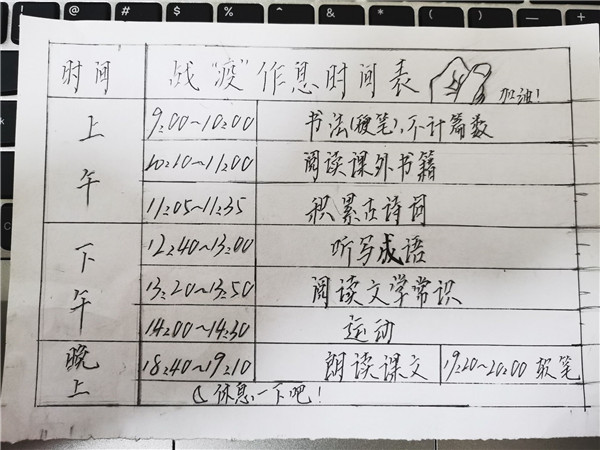 时间 战“疫”作息时间表 加油！
上午
9:00~10:00 书法(硬笔)，不计篇数
10:10~11:00 阅读课外书籍
11:05~11:35 积累古诗词
下午
12:40~13:00 听写成语
13:20~13:50 阅读文学常识
14:00~14:30 运动
晚上
18:40~19:10 朗读课文 19:20~20:00 软笔
休息一下吧！